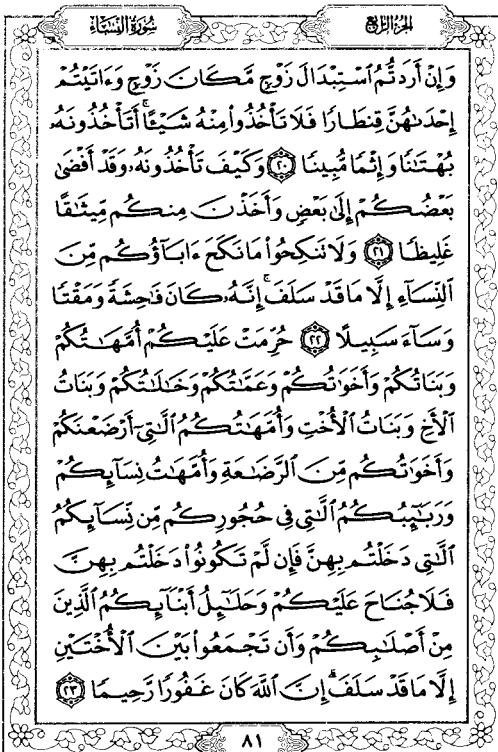 سورة النساء
الجزء الرابع
وَإِنْ أَرَدتُّمُ ٱسْتِبْدَالَ زَوْجٍ مَّكَانَ زَوْجٍ وَءَاتَيْتُمْ
إِحْدَىٰهُنَّ قِنطَارًا فَلَا تَأْخُذُوا۟ مِنْهُ شَيْـًٔا ۚ أَتَأْخُذُونَهُۥ
بُهْتَـٰنًا وَإِثْمًا مُّبِينًا ﴿٢٠﴾ وَكَيْفَ تَأْخُذُونَهُۥ وَقَدْ أَفْضَىٰ
بَعْضُكُمْ إِلَىٰ بَعْضٍ وَأَخَذْنَ مِنكُم مِّيثَـٰقًا
غَلِيظًا ﴿٢١﴾ وَلَا تَنكِحُوا۟ مَا نَكَحَ ءَابَآؤُكُم مِّنَ
ٱلنِّسَآءِ إِلَّا مَا قَدْ سَلَفَ ۚ إِنَّهُۥ كَانَ فَـٰحِشَةً وَمَقْتًا
وَسَآءَ سَبِيلًا ﴿٢٢﴾ حُرِّمَتْ عَلَيْكُمْ أُمَّهَـٰتُكُمْ
وَبَنَاتُكُمْ وَأَخَوَٰتُكُمْ وَعَمَّـٰتُكُمْ وَخَـٰلَـٰتُكُمْ وَبَنَاتُ
ٱلْأَخِ وَبَنَاتُ ٱلْأُخْتِ وَأُمَّهَـٰتُكُمُ ٱلَّـٰتِىٓ أَرْضَعْنَكُمْ
وَأَخَوَٰتُكُم مِّنَ ٱلرَّضَـٰعَةِ وَأُمَّهَـٰتُ نِسَآئِكُمْ
وَرَبَـٰٓئِبُكُمُ ٱلَّـٰتِى فِى حُجُورِكُم مِّن نِّسَآئِكُمُ
ٱلَّـٰتِى دَخَلْتُم بِهِنَّ فَإِن لَّمْ تَكُونُوا۟ دَخَلْتُم بِهِنَّ
فَلَا جُنَاحَ عَلَيْكُمْ وَحَلَـٰٓئِلُ أَبْنَآئِكُمُ ٱلَّذِينَ
مِنْ أَصْلَـٰبِكُمْ وَأَن تَجْمَعُوا۟ بَيْنَ ٱلْأُخْتَيْنِ
إِلَّا مَا قَدْ سَلَفَ ۗ إِنَّ ٱللَّهَ كَانَ غَفُورًا رَّحِيمًا ﴿٢٣﴾
٨١